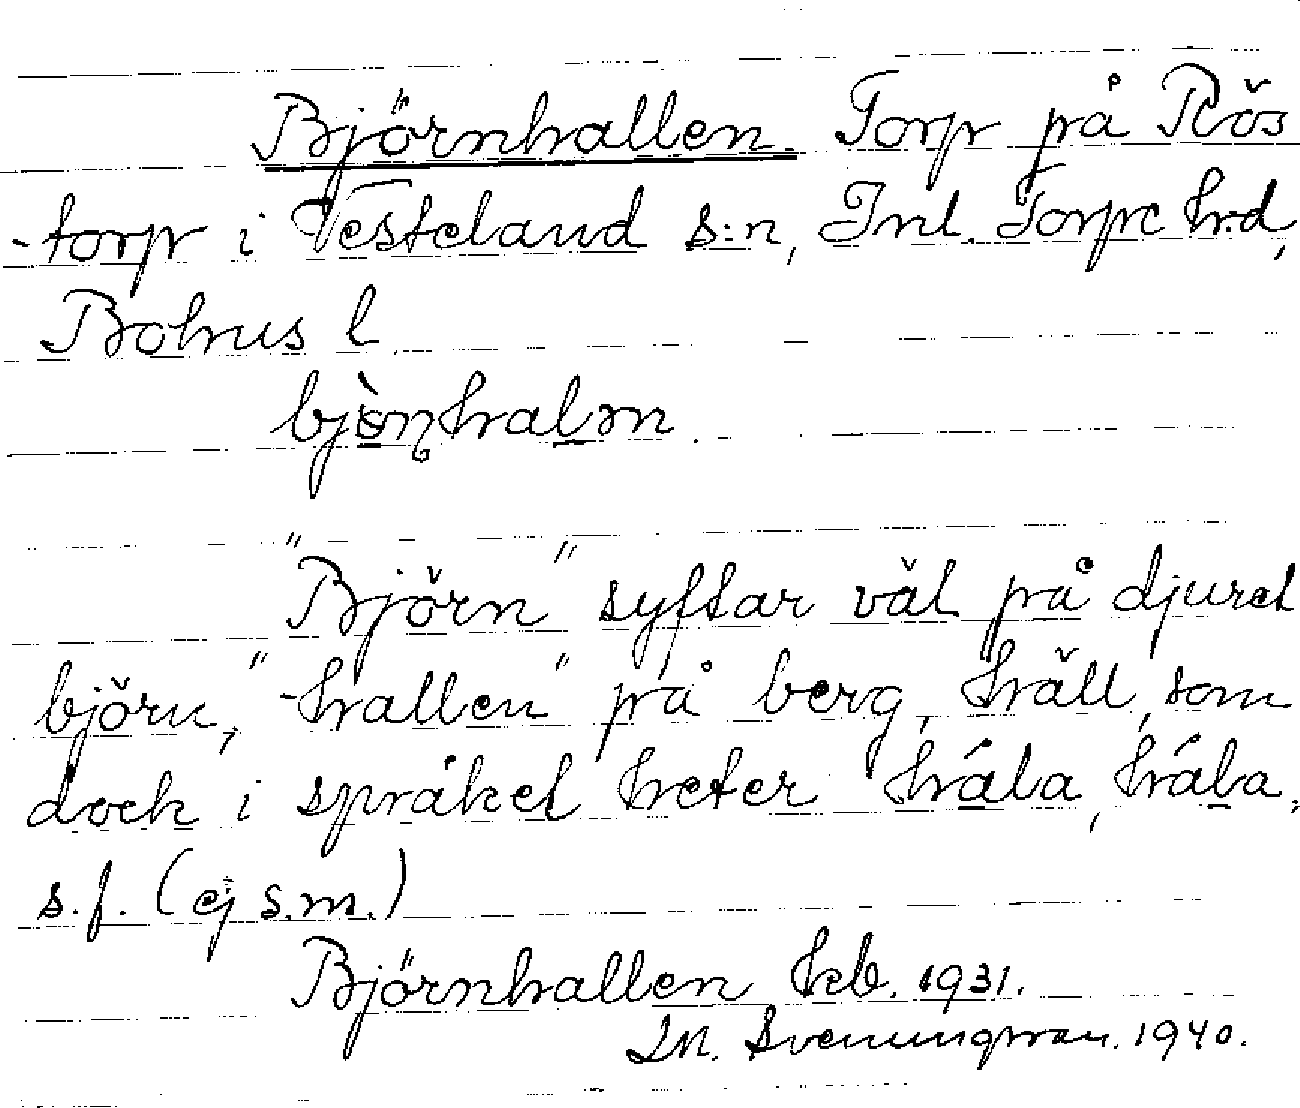 Björnhallen. Torp på Rös
-torp i Vesteland s:n, Inl. Torpe hrd,
Bohus l.
"Björn" syftar väl på djuret
björn, "-hallen" på berg, häll, som
dock i språket heter hála, hála,
s.f. (ej s.m.)
Björnhallen hcb. 1931.
1940.